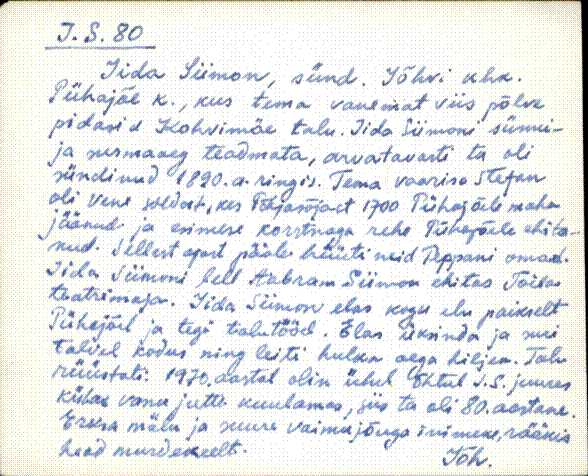 I. S. 80
Iida Siimon, sünd. Jõhvi khk.
Pühajõe k., kus tema vanemat viis põlve
pidasid Kohvimäe talu. Iida Siimoni sünni-
ja surmaaeg teadmata, arvatavasti ta oli
sündinud 1890.a. ringis. Tema vaarisa Stefan
oli Vene soldat, kes Põhjasõjast 1700 Pühajõele maha
jäänud ja esimese korstnaga rehe Pühajõele ehita-
nud. Sellest ajast pääle hüüti neid Peppani omad.
Iida Siimoni lell Aabram Siimon ehitas Toila
teatrimaja. Iida Siimon elas kogu elu paikselt
Pühajõel ja tegi talutööd. Elas üksinda ja suri
talvel kodus ning leiti hulka aega hiljem. Talu
rüüstati. 1970. aastal olin ühel õhtul I.S. juures
külas vanu jutte kuulamas, siis ta oli 80. aastane.
Erksa mälu ja suure vaimujõuga inimene, rääkis
head murdekeelt.
Jõh.